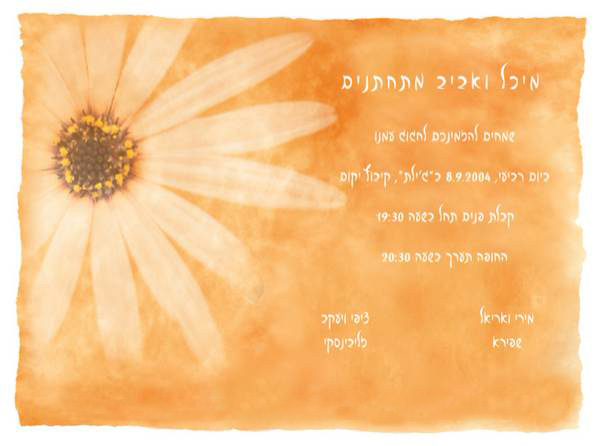 מיכל ואביב מתחתנים
שמחים להזמינכם לחגוג עמנו
ביום רביעי, 8.9.2004 ב"ג'ילת", קיבוץ יקום
קבלת פנים תחל בשעה 19:30
החופה תערך בשעה 20:30
מירי ואריאל
שפירא
ציפי ויעקב
פליבינסקי